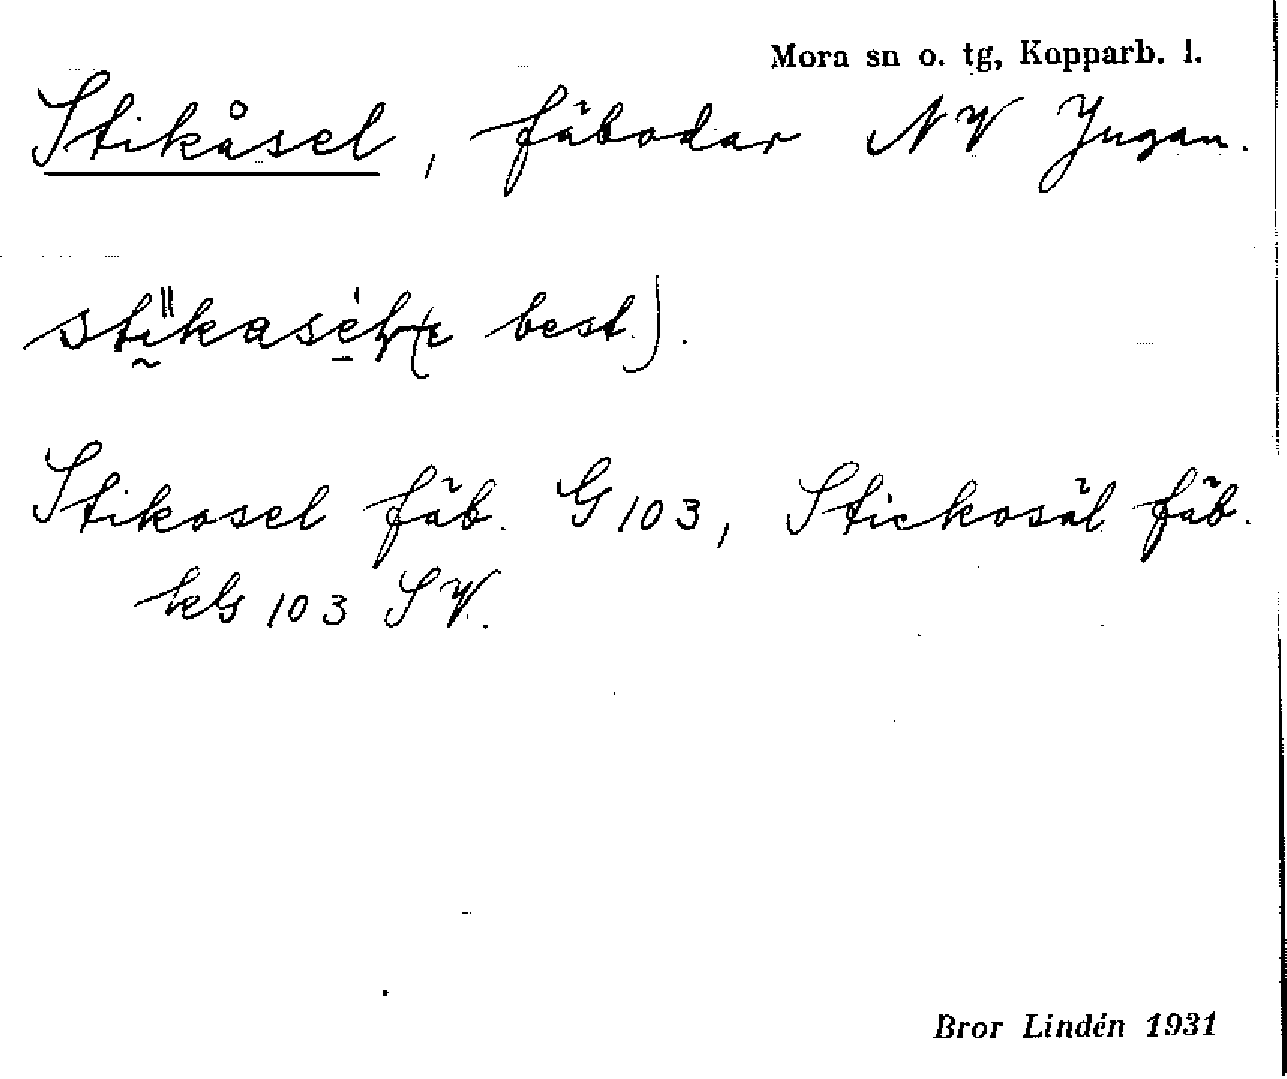 Mora sn o. tg, Kopparb. l.
Stikåsel, fäbodar NV Jugan.
best.).
Stikosel fäb. G 103, Stickosäl fäb.
kG 103 SV.
Bror Lindén 1931